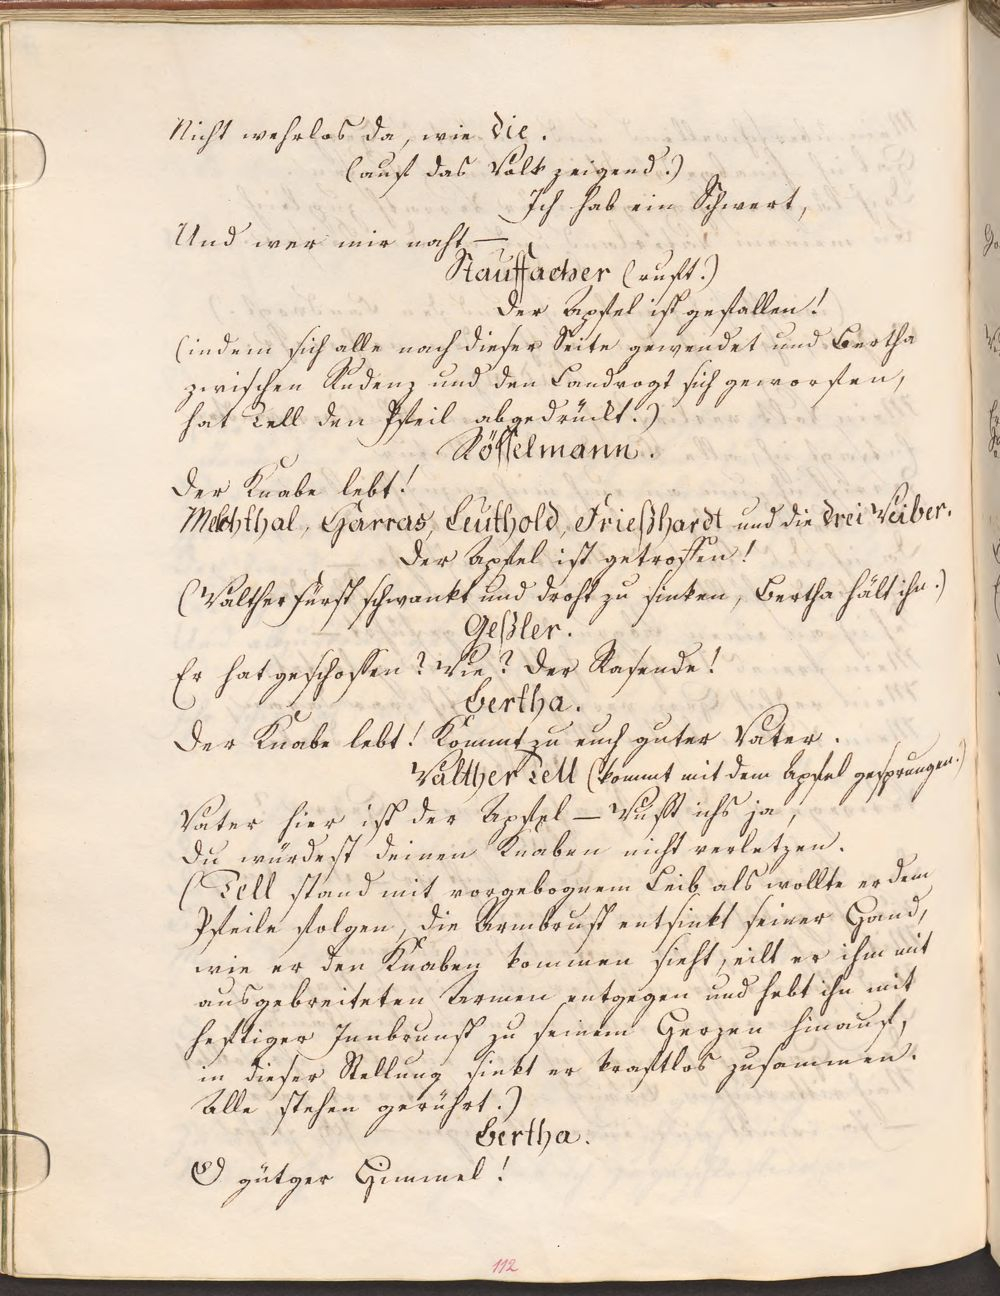 Nicht wehrlos da, wie die.
(auf das Volk zeigend.)
Ich hab ein Schwert,
Und wer mir naht —
Stauffacher (ruft.)
Der Apfel ist gefallen!
(indem sich alle nach dieser Seite gewendet und Bertha
zwischen Rudenz und den Landvogt sich geworfen,
hat Tell den Pfeil abgedrückt.)
Rösselmann.
Der Knabe lebt!
Melchthal, Harras, Leuthold, Frießhardt und die drei Weiber.
Der Apfel ist getroffen!
(Walther Fürst schwankt und droht zu sinken, Bertha hält ihn.)
Geßler.
Er hat geschossen? Wie? Der Rasende!
Bertha.
Der Knabe lebt! Kommt zu euch guter Vater.
Walther Tell (kommt mit dem Apfel gesprungen.)
Vater hier ist der Apfel — Wußt ichs ja,
Du würdest deinen Knaben nicht verletzen.
(Tell stand mit vorgebognem Leib als wollte er dem
Pfeile folgen, die Armbrust entsinkt seiner Hand,
wie er den Knaben kommen sieht, eilt er ihm mit
ausgebreiteten Armen entgegen und hebt ihn mit
heftiger Innbrunst zu seinem Herzen hinauf,
in dieser Stellung sinkt er kraftlos zusammen.
Alle stehen gerührt.)
Bertha.
O gütger Himmel!
112